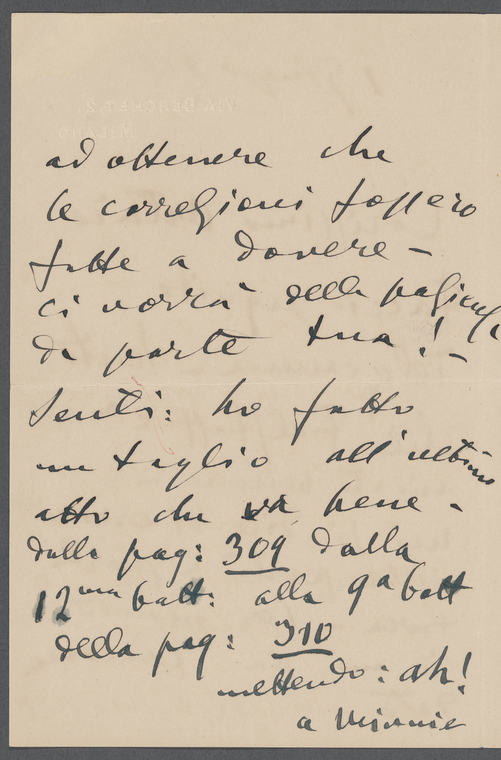 ad ottenere che
le correzioni fossero
fatte a dovere –
ci vorrà della pazienza
da parte tua! –
Senti: ho fatto
un taglio all'ultimo
atto che va bene –
dalla pag: 309 dalla
12ma batt: alla 9a batt
della pag: 310
mettendo: ah!
a Minnie